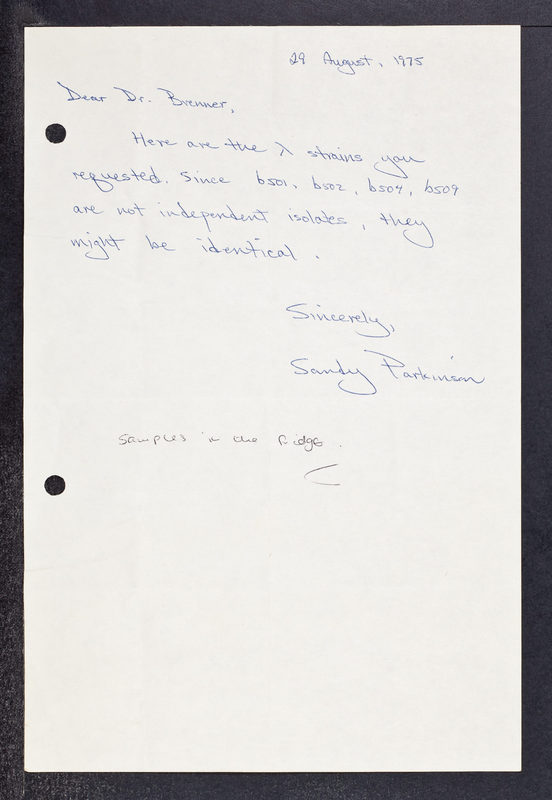 29 August, 1975
Dear Dr. Brenner,
Here are the λ strains you
requested. Since b501, b502, b504, b509
are not independent isolates, they
might be identical.
Sincerely,
Sandy Parkinson
Samples in the fridge.